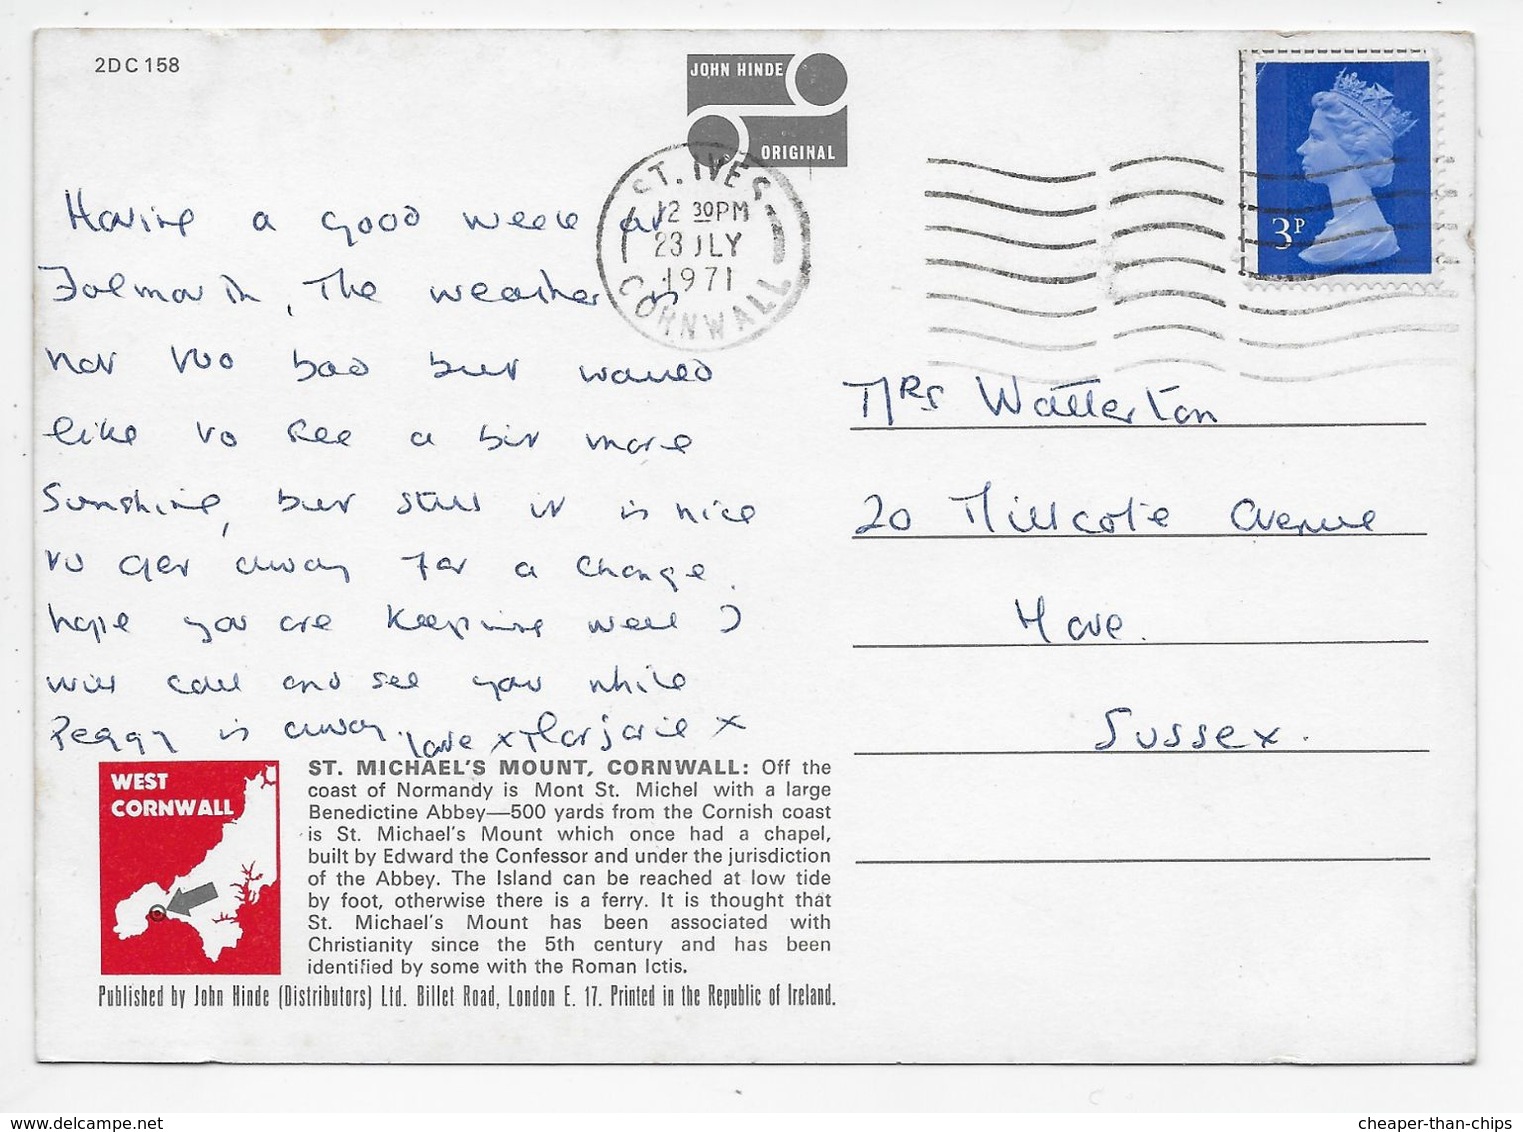 2DC158
JOHN HINDE
ORIGINAL
ST. IVES
12 30PM
23 JLY
1971
CORNWALL
3P
Having a good week at
Falmouth, The weather is
not too bad but would
like to see a bit more
Sunshine, but still it is nice
to get away for a change.
hope you are keeping well I
will call and see you while
Peggy is away. Love x Marjorie x
Mrs Watterton
20 Millcote Avenue
Hove.
Sussex.
WEST
CORNWALL
ST. MICHAEL'S MOUNT, CORNWALL: Off the
coast of Normandy is Mont St. Michel with a large
Benedictine Abbey—500 yards from the Cornish coast
is St. Michael's Mount which once had a chapel,
built by Edward the Confessor and under the jurisdiction
of the Abbey. The Island can be reached at low tide
by foot, otherwise there is a ferry. It is thought that
St. Michael's Mount has been associated with
Christianity since the 5th century and has been
identified by some with the Roman Ictis.
Published by John Hinde (Distributors) Ltd. Billet Road, London E. 17. Printed in the Republic of Ireland.
www.delcampe.net
cheaper-than-chips